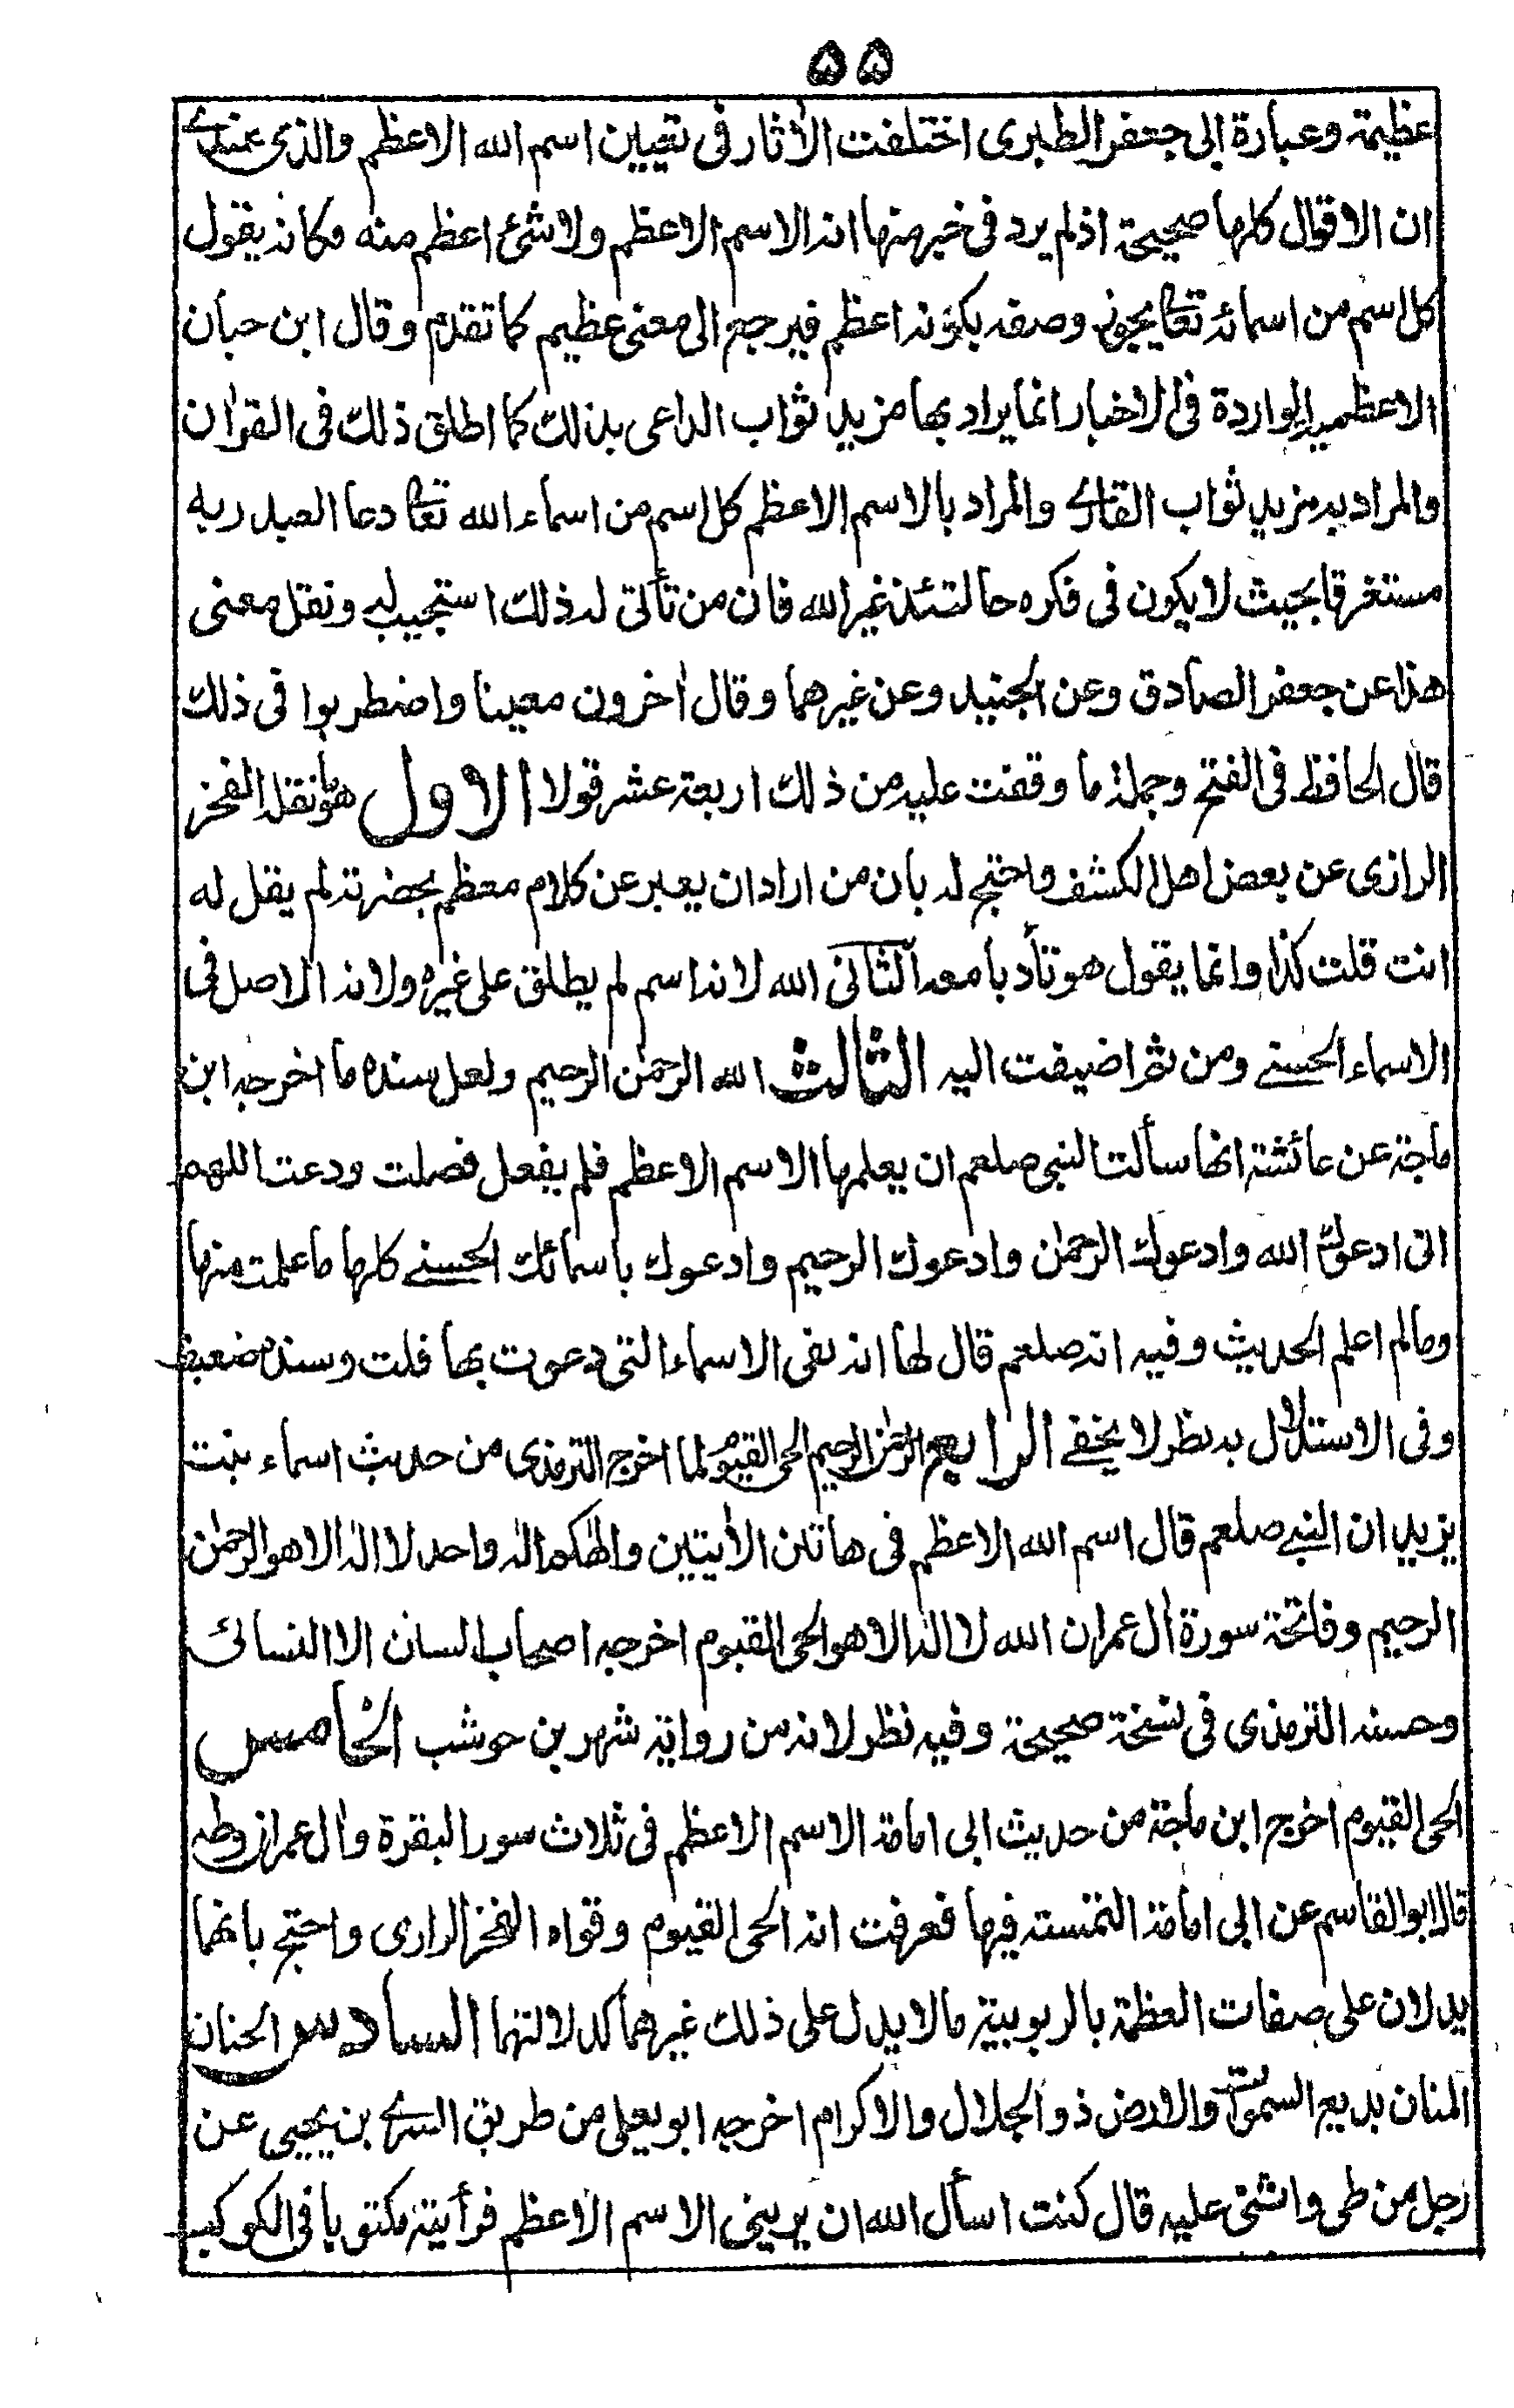 ۵۵
عظيمة وعبارة ابى جعفر الطبرى اختلفت الاٰثار فى تعيين اسم الله الاعظم والذى عندے
ان الاقوال كلها صحيحة اذ لم يرد فى خبر منها انه الاسم الاعظم ولا شئ اعظم منه فكانه يقول
كل اسم من اسمائه تعالىٰ يجوز وصفه بكونه اعظم فيرجع الى معنى عظيم كما تقدم وقال ابن حبان
الاعظمية الواردة فى الاخبار انما يراد بها مزيد ثواب الداعى بذلك كما اطلق ذلك فى القراٰن
والمراد به مزيد ثواب القارے والمراد بالاسم الاعظم كل اسم من اسماء الله تعالىٰ دعا العبد ربه
مستغرقا بحيث لا يكون فى فكره حالتئذ غير الله فان من تأتى له ذلك استجيب له ونقل معنى
هذا عن جعفر الصادق وعن الجنيد وعن غيرهما وقال اٰخرون معينا واضطربوا فى ذلك
قال الحافظ فى الفتح وجملة ما وقفت عليه من ذلك اربعة عشر قولا الاول هو نقله الفخر
الرازى عن بعض اهل الكشف واحتج له بان من اراد ان يعبر عن كلام معظم بحضرته لم يقل له
انت قلت كذا وانما يقول هو تأدبا معه الثانى الله لانه اسم لم يطلق على غيره ولانه الاصل فى
الاسماء الحسنے ومن ثم اضيفت اليه الثالث الله الرحمٰن الرحيم ولعل سنده ما اخرجه ابن
ماجة عن عائشة انها سألت النبى صلعم ان يعلمها الاسم الاعظم فلم يفعل فصلت ودعت اللهم
انى ادعوك الله وادعوك الرحمٰن وادعوك الرحيم وادعوك باسمائك الحسنے كلها ما علمت منها
وما لم اعلم الحديث وفيه انه صلعم قال لها انه لفى الاسماء التى دعوت بها قلت وسنده ضعيف
وفى الاستدلال به نظر لا يخفے الرابع الرحمٰن الرحيم الحى القيوم لما اخرج الترمذى من حديث اسماء بنت
يزيد ان النبے صلعم قال اسم الله الاعظم فى هاتين الاٰيتين والٰهكم الٰه واحد لا الٰه الا هو الرحمٰن
الرحيم وفاتحة سورة اٰل عمران الله لا الٰه الا هو الحى القيوم اخرجه اصحاب السنن الا النسائے
وحسنه الترمذى فى نسخة صحيحة وفيه نظر لانه من رواية شهر بن حوشب الخامس
الحى القيوم اخرج ابن ماجة من حديث ابى امامة الاسم الاعظم فى ثلاث سور البقرة واٰل عمران وطه
قال ابو القاسم عن ابى امامة التمسته فيها فعرفت انه الحى القيوم وقواه الفخر الرازى واحتج بانهما
يدلان على صفات العظمة بالربوبية ما لا يدل على ذلك غيرهما كدلالتهما السادس الحنان
المنان بديع السمٰوات والارض ذو الجلال والاكرام اخرجه ابو يعلى من طريق السرے بن يحيى عن
رجل من طى واثنى عليه قال كنت اسأل الله ان يرينى الاسم الاعظم فرأيته مكتوبا فى الكوكب